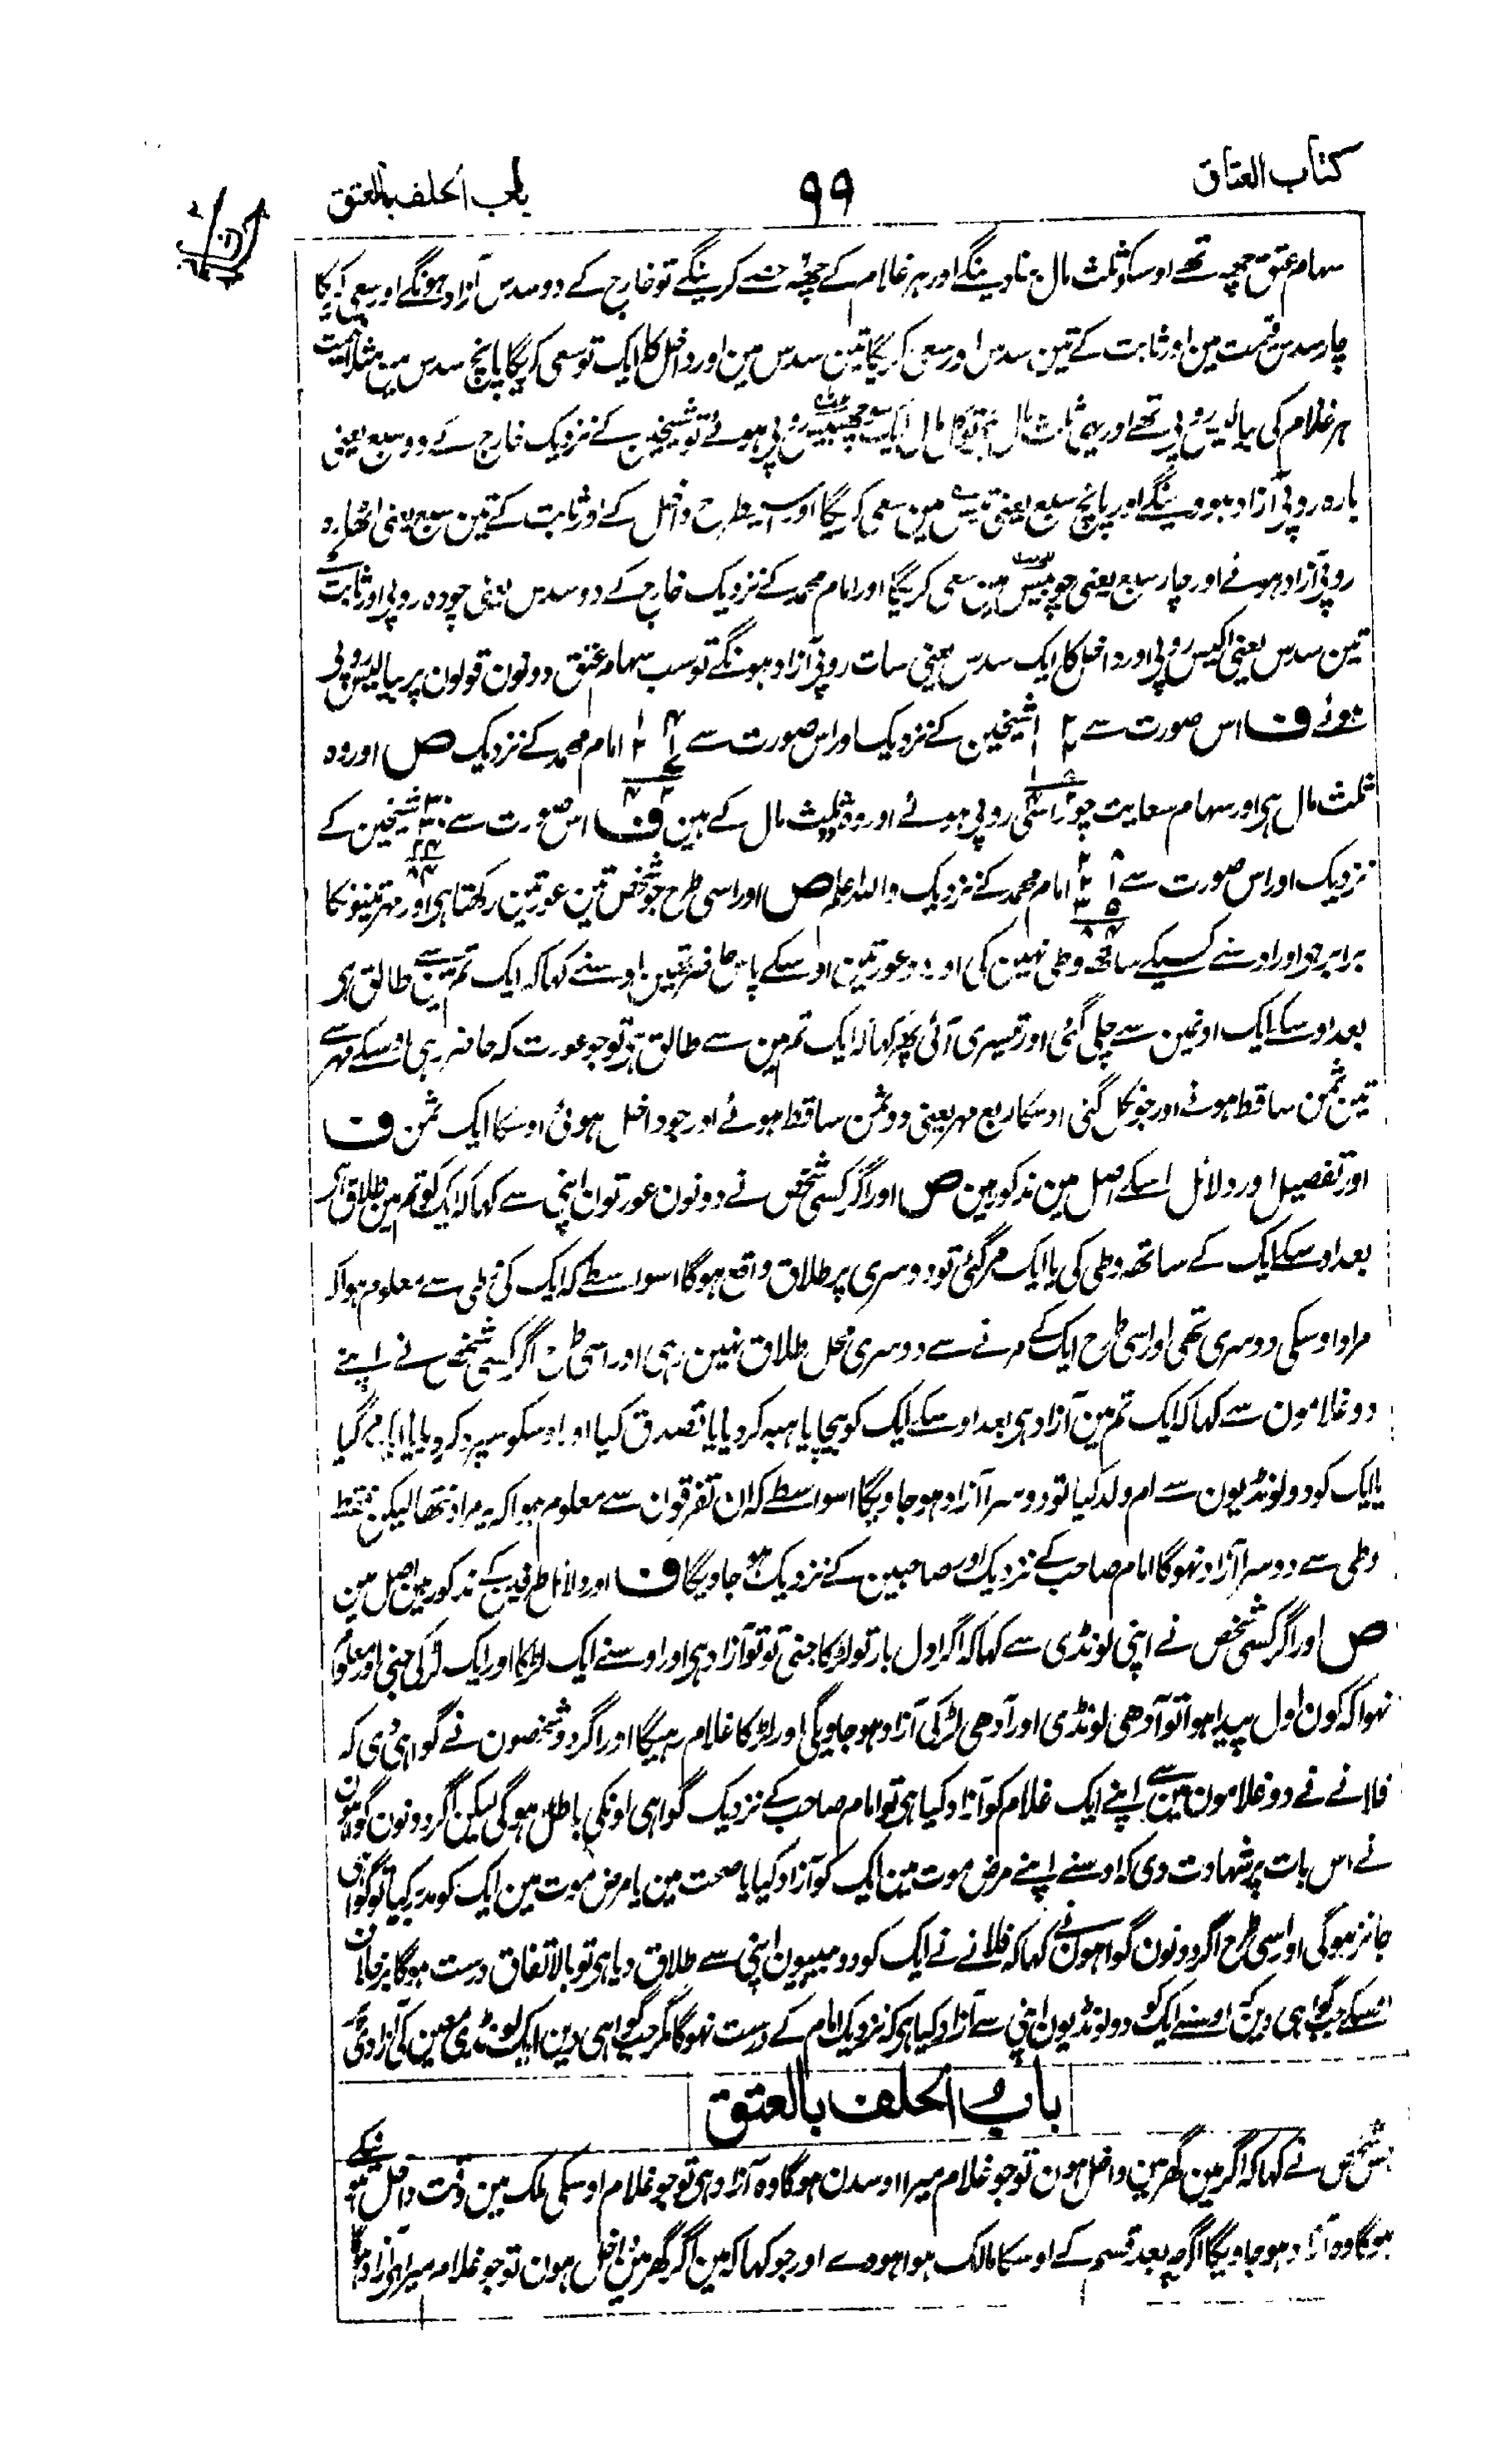 کتاب العتاق
۹۹
باب الحلف بالعتق
سہام عتق چھہ تھے اوسکو ثلث مال بنا دینگے اور ہر غلام کے چھہ حصے کرینگے تو خارج کے دو سدس آزاد ہونگے اور سعی کریگا
چار سدس قیمت مین اور ثابت کے تین سدس اور سعی کریگا تین سدس مین اور داخل کا ایک تو سعی کریگا پانچ سدس مین مثلا قیمت
ہر غلام کی بیالیس روپی تھے اور یہی ثلث مال ہی تو کل مال ایک سو چھبیس روپی ہوئے تو شیخین کے نزدیک خارج کے دو سبع یعنی
بارہ روپی آزاد ہووینگے اور پانچ سبع یعنی تیس مین سعی کریگا اور اسیطرح داخل کے اور ثابت کے تین سبع یعنی اٹھارہ
روپی آزاد ہونے اور چار سبع یعنی چوبیس مین سعی کریگا اور امام محمد کے نزدیک خارج کے دو سدس یعنی چودہ روپی اور ثابت کے
تین سدس یعنی اکیس روپی اور داخل کا ایک سدس یعنی سات روپی آزاد ہونگے تو سب سہام عتق دونون قولون پر بیالیس روپی
ہوئے ف اس صورت سے شیخین کے نزدیک اور اس صورت سے امام محمد کے نزدیک ص اور وہ
ثلث مال ہی اور سہام سعایت چوراسی روپی ہوئے اور وہ دو ثلث مال کے ہین ف اس صورت سے شیخین کے
نزدیک اور اس صورت سے امام محمد کے نزدیک واللہ اعلم ص اور اسی طرح جو شخص تین عورتین رکھتا ہی اور مہر تینونکا
برابر ہو اور اوسنے کسیکے ساتھ وطی نہین کی اور دو عورتین اوسکے پاس حاضر تھین اوسنے کہا کہ ایک تم مین سے طالق ہی
بعد اوسکے ایک اونمین سے چلی گئی اور تیسری آئی پھر کہا کہ ایک تم مین سے طالق ہی تو جو عورت کہ حاضر رہی اوسکے مہر سے
تین ثمن ساقط ہوئے اور جو نکل گئی اوسکا ربع مہر یعنی دو ثمن ساقط ہوئے اور جو داخل ہوئی اوسکا ایک ثمن ف
اور تفصیل اور دلائل اسکے اصل مین مذکور ہین ص اور اگر کسی شخص نے دونون عورتون اپنی سے کہا کہ ایک کو تم مین طلاق ہی
بعد اوسکے ایک کے ساتھ وطی کی یا ایک مر گئی تو دوسری پر طلاق واقع ہوگا اسواسطے کہ ایک کی وطی سے معلوم ہوا کہ
مراد اوسکی دوسری تھی اور اسی طرح ایک کے مرنے سے دوسری محل طلاق نہین رہی اور اسی طرح اگر کسی شخص نے اپنے
دو غلامون سے کہا کہ ایک تم مین آزاد ہی بعد اوسکے ایک کو بیچا یا ہبہ کر دیا یا تصدق کیا اور اوسکو سپرد کر دیا یا ایک مر گیا
یا ایک کو دو لونڈیون سے ام ولد کیا تو دوسرا آزاد ہو جاویگا اسواسطے کہ ان تفرقون سے معلوم ہوا کہ یہ مراد نتھا لیکن فقط
وطی سے دوسرا آزاد نہوگا امام صاحب کے نزدیک اور صاحبین کے نزدیک ہو جاویگا ف اور دلائل طرفین کے مذکور ہین اصل مین
ص اور اگر کسی شخص نے اپنی لونڈی سے کہا کہ اگر اول بار تو لڑکا جنی تو تو آزاد ہی اور اوسنے ایک لڑکا اور ایک لڑکی جنی اور معلوم
نہوا کہ کون اول پیدا ہوا تو آدھی لونڈی اور آدھی لڑکی آزاد ہو جاویگی اور لڑکا غلام رہیگا اور اگر دو شخصون نے گواہی دی کہ
فلانے نے دو غلامون مین سے اپنے ایک غلام کو آزاد کیا ہی تو امام صاحب کے نزدیک گواہی اونکی باطل ہوگی لیکن اگر دونون گواہون
نے اس بات پر شہادت دی کہ اوسنے اپنے مرض موت مین ایک کو آزاد کیا یا صحت مین یا مرض موت مین ایک کو مدبر کیا تو گواہی
جائز ہوگی اور اسی طرح اگر دونون گواہون نے کہا کہ فلانے نے ایک کو دو بیبیون اپنی سے طلاق دیا ہی تو بالاتفاق درست ہوگا برخلاف
اسکے جب گواہی دین کہ اوسنے ایک کو دو لونڈیون اپنی سے آزاد کیا ہی کہ نزدیک امام کے درست نہوگا مگر جب گواہی دین ایک لونڈی معین کی آزادی
باب الحلف بالعتق
جس شخص نے کہا کہ اگر مین گھر مین داخل ہون تو جو غلام میرا اوسدن ہوگا وہ آزاد ہی تو جو غلام اوسکی ملک مین وقت داخل ہونیکے
ہوگا وہ آزاد ہو جاویگا اگرچہ بعد قسم کے اوسکا مالک ہوا ہووے اور جو کہا کہ مین اگر گھر مین داخل ہون تو جو غلام میرا ہی آزاد ہوگا